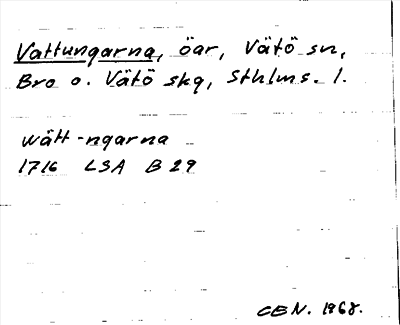 Vattungarna, öar, Vätö sn,
Bro o. Vätö skg, Sthlms. l.
wätt-ngarna
1716 LSA B 29
CEN. 1968.